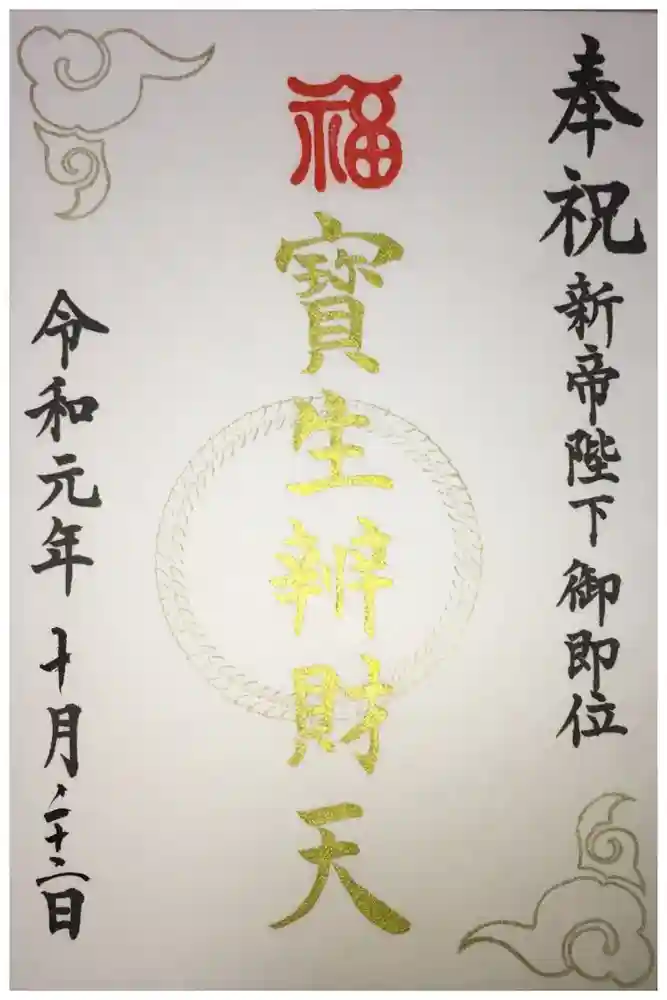 奉祝新帝陛下御即位
福
寳生辨財天
令和元年十月二十二日